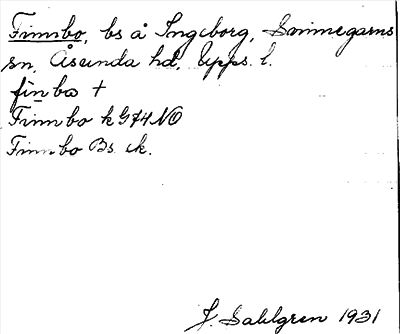 Finnbo, bs å Ingeborg, Simmegarns
sn, Åsunda hd, Upps. l.
fin bω +
Finnbo k G74 NO
Finnbo Bs ck.
J. Sahlgren 1931